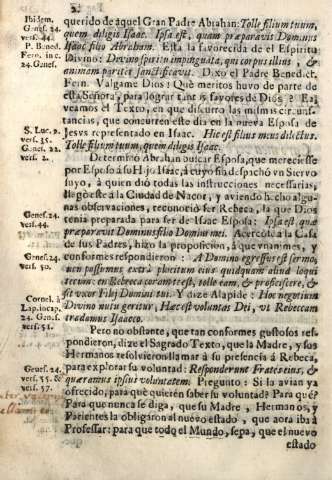 2
Ibidem.
Genes. 24.
vers. 44.
P. Bened.
Fern. inc.
24. Genes.
querido de aquel Gran Padre Abrahan: Tolle filium tuum,
quem diligis Isaac. Ipsa est, quam præparavit Dominus
Isaac filio Abraham. Esta la favorecida de el Espiritu
Divino: Divino spiritu impinguata, qui corpus illius, &
animam pariter sanctificavit. Dixo el Padre Benedict.
Fern. Valgame Dios! Què meritos huvo de parte de
esta Señora, para lograr tantos favores de Dios? Ea,
veamos el Texto, en que discurro las mismas circunstancias,
que concurren este dia en la nueva Esposa de
S. Luc. 2.
vers. 35.
Genes. 22.
vers. 2.
Jesvs representado en Isaac. Hic est filius meus dilectus.
Tolle filium tuum, quem diligis Isaac.
Determinò Abrahan buscar Esposa, que mereciesse
por Esposo à su Hijo Isaac, à cuyo fin despachò vn Siervo
suyo, à quien diò todas las instrucciones necessarias,
llegò este à la Ciudad de Nacor, y aviendo hecho algunas
observaciones, reconociò ser Rebeca, la que Dios
Genes. 24.
vers. 44.
tenia preparada para ser de Isaac Esposa: Ipsa est quā
præparavit Dominus filio Domini mei. Acercòse à la Casa
de sus Padres, hizo la proposicion, à que vnanimes, y
Genes. 24.
vers. 50.
conformes respondieron: A Domino egressus est sermo,
non possumus extra placitum eius quidquam aliud loqui
tecum: en Rebeca coram te est, tolle eam, & proficiscere, &
Cornel. à
Lap. in cap.
24. Genes.
vers. 51.
sit vxor Filij Domini tui. Y dize Alapide: Hoc negotium
Divino nutu geritur, Hæc est voluntas Dei, vt Rebeccam
tradamus Isaaco.
Pero no obstante, que tan conformes gustosos respondieron,
dize el Sagrado Texto, que la Madre, y sus
Hermanos resolvieron llamar à su presencia à Rebeca,
Genes. 24.
vers. 55. &
vers. 57.
para explorar su voluntad: Responderunt Fratres eius, &
quæramus ipsius voluntatem. Pregunto: Si la avian ya
ofrecido, para què quieren saber su voluntad? Para què?
Para que nunca se diga, que su Madre, Hermanos, y
Parientes la obligaron al nuevo estado, que aora iba à
Professar: para que todo el Mundo, sepa, que el nuevo
estado